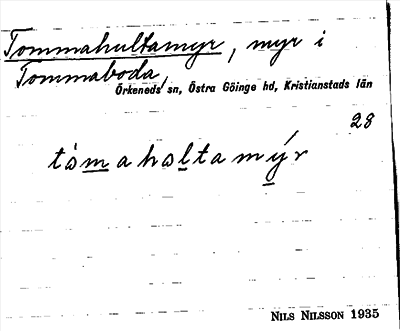 Tommahultamyr, myr i
Tommaboda,
Örkeneds sn, Östra Göinge hd, Kristianstads län
28
tòmahaltamýr
NILS NILSSON 1935